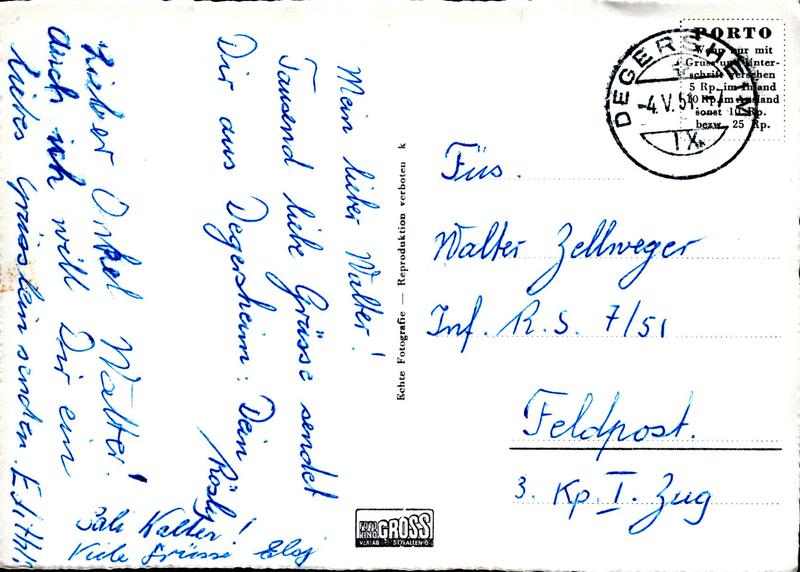 Mein lieber Walter!
Tausend liebe Grüsse sendet
Dir aus Degersheim: Dein
Rösly!
Lieber Onkel Walter!
Auch ich will Dir ein
liebes Grüsslein senden. Edith
Sali Walter!
Viele Grüsse Elsj
Echte Fotografie — Reproduktion verboten k
GROSS
KINO
VERLAG ST.GALLEN-O
PORTO
Wenn nur mit
Gruss und Unter-
schrift versehen
5 Rp. im Inland
10 Rp. im Ausland
sonst 10 Rp.
bezw. 25 Rp.
DEGERSHEIM
-4.V.51.-7
IX
Füs.
Walter Zellweger
Inf. R. S. 7/51
Feldpost.
3. Kp. I. Zug